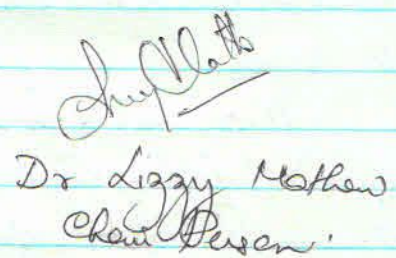 Dr Lizzy Mathew
Chair Person.